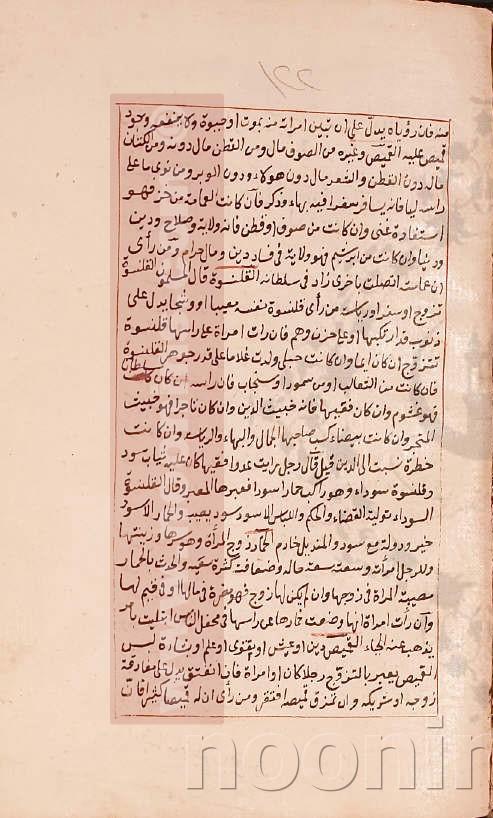 ٢٢١
منه فان رؤياه يدل على ان تبين امراته منه بموت او حيوة ولا ينتفع وجود
قميص عليه القميص وغيره من الصوف مال ومن القطن مال دونه ومن الكتان
مال دون القطن والشعر مال دون هولاء ودون الوبر ومن نوى ما على
راسه ليا فانه يسافر سفرا فيه بهاء وذكر فان كانت العامة من خز فهو
استفادة غنى وان كانت من صوف او قطن فانه ولاية وصلاح ودين
ودنيا وان كانت من ابريسم فهو ولاية في فساد دين ومال حرام ومن رأى
ان عمامته اتصلت باخرى زاد في سلطانه القلنسوة قال المسلمون القلنسوة
تزوج او سفر او رياسة من رأى قلنسوة نفسه معيبا او وسخا يدل على
ذنوب قد ارتكبها او على حزن وهم فان رات امراة على راسها قلنسوة
تتزوج ان كان ايما وان كانت حبلى ولدت غلاما على قدر جوهر القلنسوة
فان كانت من الثعالب او من سمور او سنجاب فان راسه ان كان سلطان
فهو غشوم وان كان فقيها فانه خبيث الدين وان كان تاجرا فهو خبيث
المتجر وان كانت بيضاء كسب صاحبها الجمال والبهاء والرياسة وان كانت
خطرة نسبت الى الدين قيل قال رجل رايت عدوا فقيها كان عليه ثياب سود
وقلنسوة سوداء وهو راكب حمارا سودا فعبرها المعبر وقال القلنسوة
السوداء تولية القضاء والحكم واللباس الاسود سود يصيب والحمار الاسود
خير ودولة مع سود والمنديل خادم الخمار زوج المرأة وهو سترها وزينتها
وللرجل امرأته وسعته سعة حاله وصفاقته كثرة سعيه والحدث بالخمار
مصيبة المراة في زوجها وان لم يكن لها زوج فهو مضرة في مالها او في قيم لها
وان رأت امراة انها وضعت خمارها عن راسها في محفل الناس ابتليت بامر
يذهب عنه الحياء القميص دين او عيش او تقوى او علم وبشارة لبس
القميص يعبر بالتزوج رجلا كان او امراة فان انفتق يدل على مفارقة
زوجه او شريكه وان تمزق قميصه افتقر ومن رأى ان له قميصا كثيرا فانه
noonir